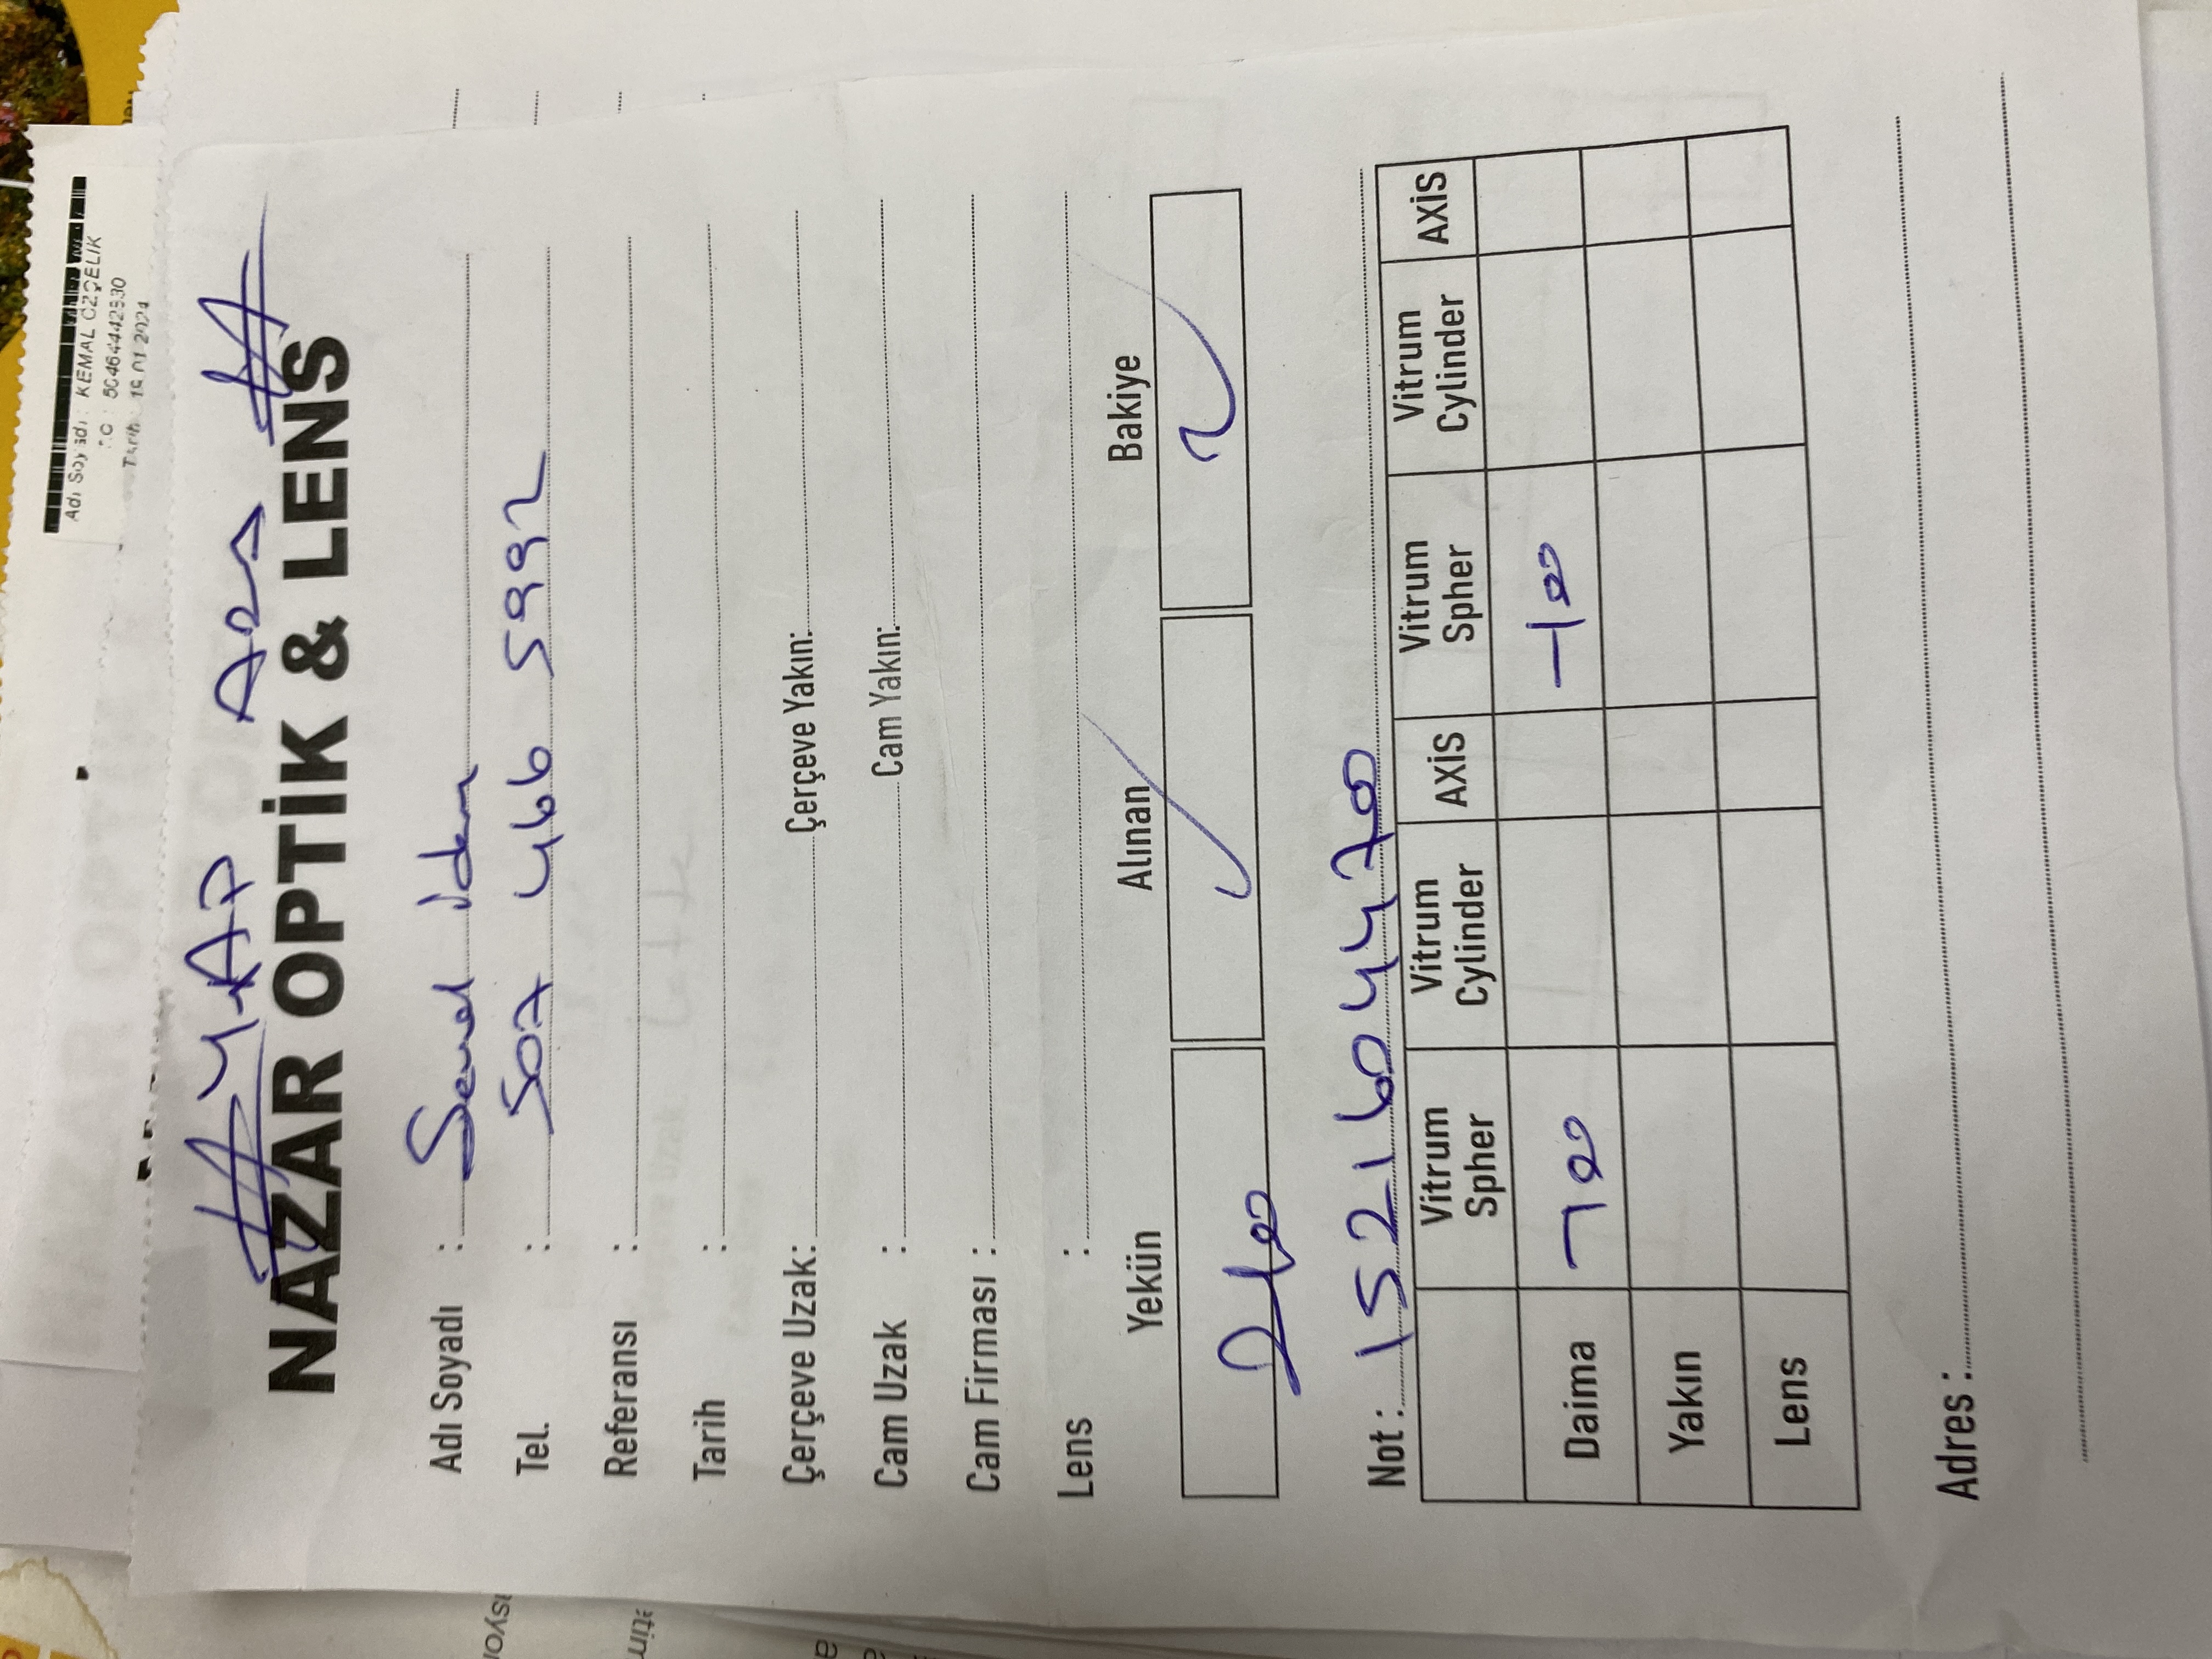 Adı Soyadı : KEMAL ÖZÇELİK
Tarih : 2024
YAP ARA
NAZAR OPTİK & LENS
Adı Soyadı :
Tel. : 507 466 5992
Referansı :
Tarih :
Çerçeve Uzak: Çerçeve Yakın:
Cam Uzak : Cam Yakın:
Cam Firması :
Lens :
Yekün Alınan Bakiye
Not : 15216044700
Vitrum Spher Vitrum Cylinder AXİS Vitrum Spher Vitrum Cylinder AXİS
Daima -100 -100
Yakın
Lens
Adres :